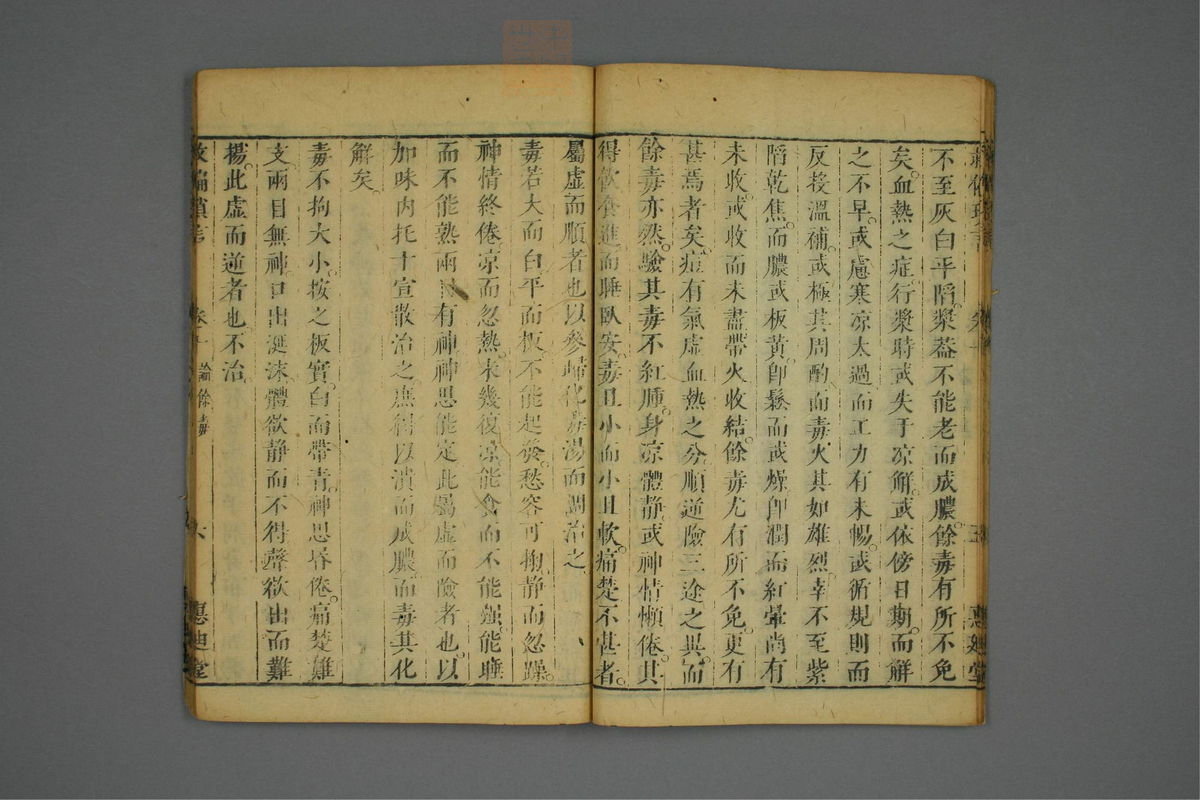 不至灰白平䧟漿葢不能老而成膿餘毒有所不免
矣血熱之症行漿時或失于凉解或依傍日期而解
之不早或慮寒凉太過而工力有未暢或循規則而
反投溫補或極其周酌而毒火其如雄烈幸不至紫
䧟乾焦而膿或板黃卽鬆而或燥卽潤而紅暈尚有
未收或收而未盡帶火收結餘毒尤有所不免更有
甚焉者矣痘有氣虛血熱之分順逆險三途之異而
餘毒亦然驗其毒不紅腫身凉體靜或神情懶倦其
得飲食進而睡臥安毒且小而小且軟痛楚不甚者
屬虛而順者也以參歸化毒湯而調治之
毒若大而白平而板不能起發愁容可掬靜而忽躁
神情終倦凉而忽熱未幾復凉能食而不能强能睡
而不能熟兩目有神神思能定此屬虛而險者也以
加味內托十宣散治之庶得以潰而成膿而毒其化
解矣
毒不拘大小按之板實白而帶青神思昏倦痛楚難
支兩目無神口出涎沫體欲靜而不得聲欲出而難
揚此虛而逆者也不治
救偏瑣言
卷十 論餘毒
六
惠迪堂